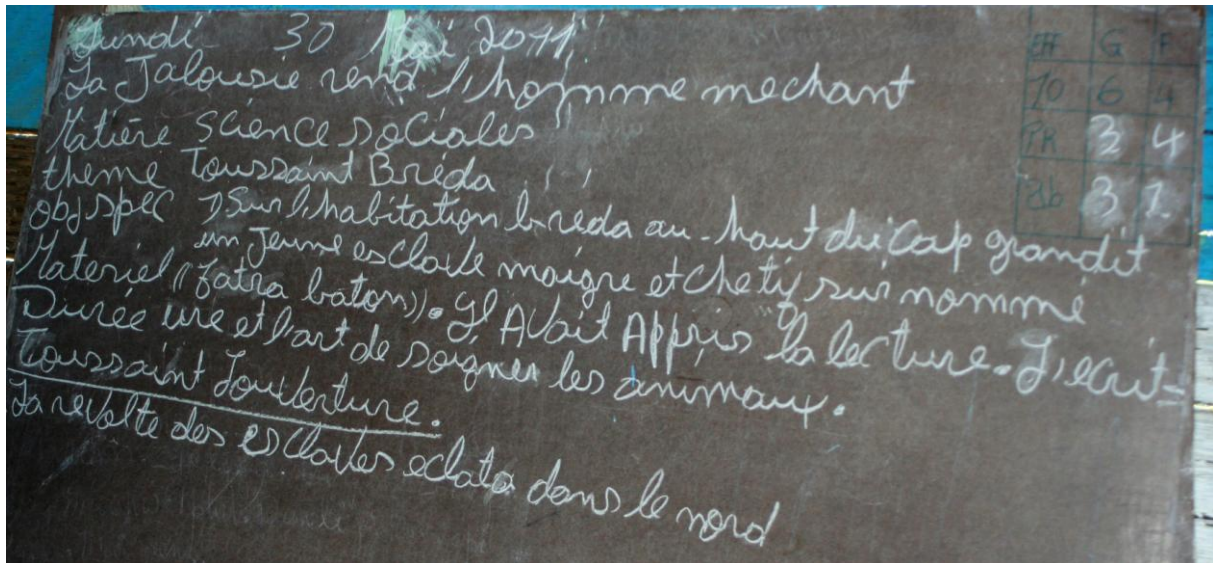 Lundi 30 Mai 2011
La Jalousie rend l'homme mechant
Matière science sociales
theme Toussaint Bréda
obj spec 1 Sur l'habitation breda au-haut du Cap grandit
un jeune esclave maigre et chetif surnommé
Materiel "fatra baton". Il Avait Appris la lecture. L'ecrit=
Durée ure et l'art de soigner les animaux.
Toussaint Louverture.
La revolte des esclaves eclata dans le nord
Eff G F
10 6 4
PR 3 4
Ab 3 1